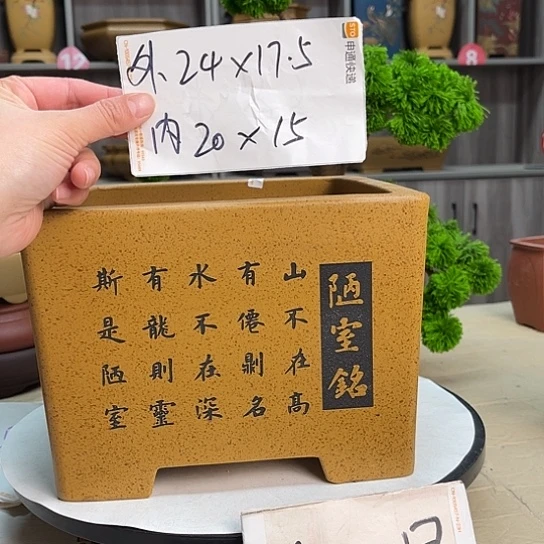 外 24×17.5
内 20×15
申通快递
陋室銘
山不在高
有僊則名
水不在深
有龍則靈
斯是陋室
12
8